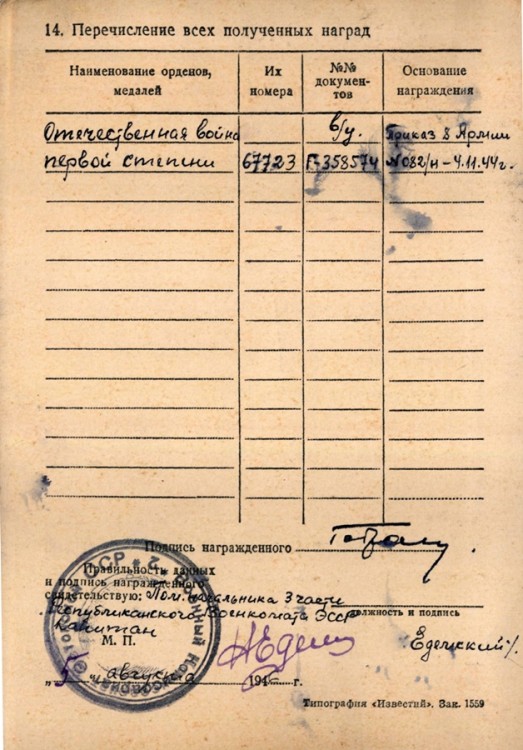 14. Перечисление всех полученных наград
Наименование орденов, медалей
Их номера
№№ документов
Основание награждения
Отечественная война в/у. Приказ 8 Армии
первой степени 67723 Г-358574 №082/н-4.11.44г.
Подпись награжденного
Правильность данных
и подпись награжденного
свидетельствую: Пом. начальника 3 части
Республиканского Военкомата ЭССР
должность и подпись
Капитан
М. П.
"5" августа 194 г.
Типография «Известий». Зак. 1559